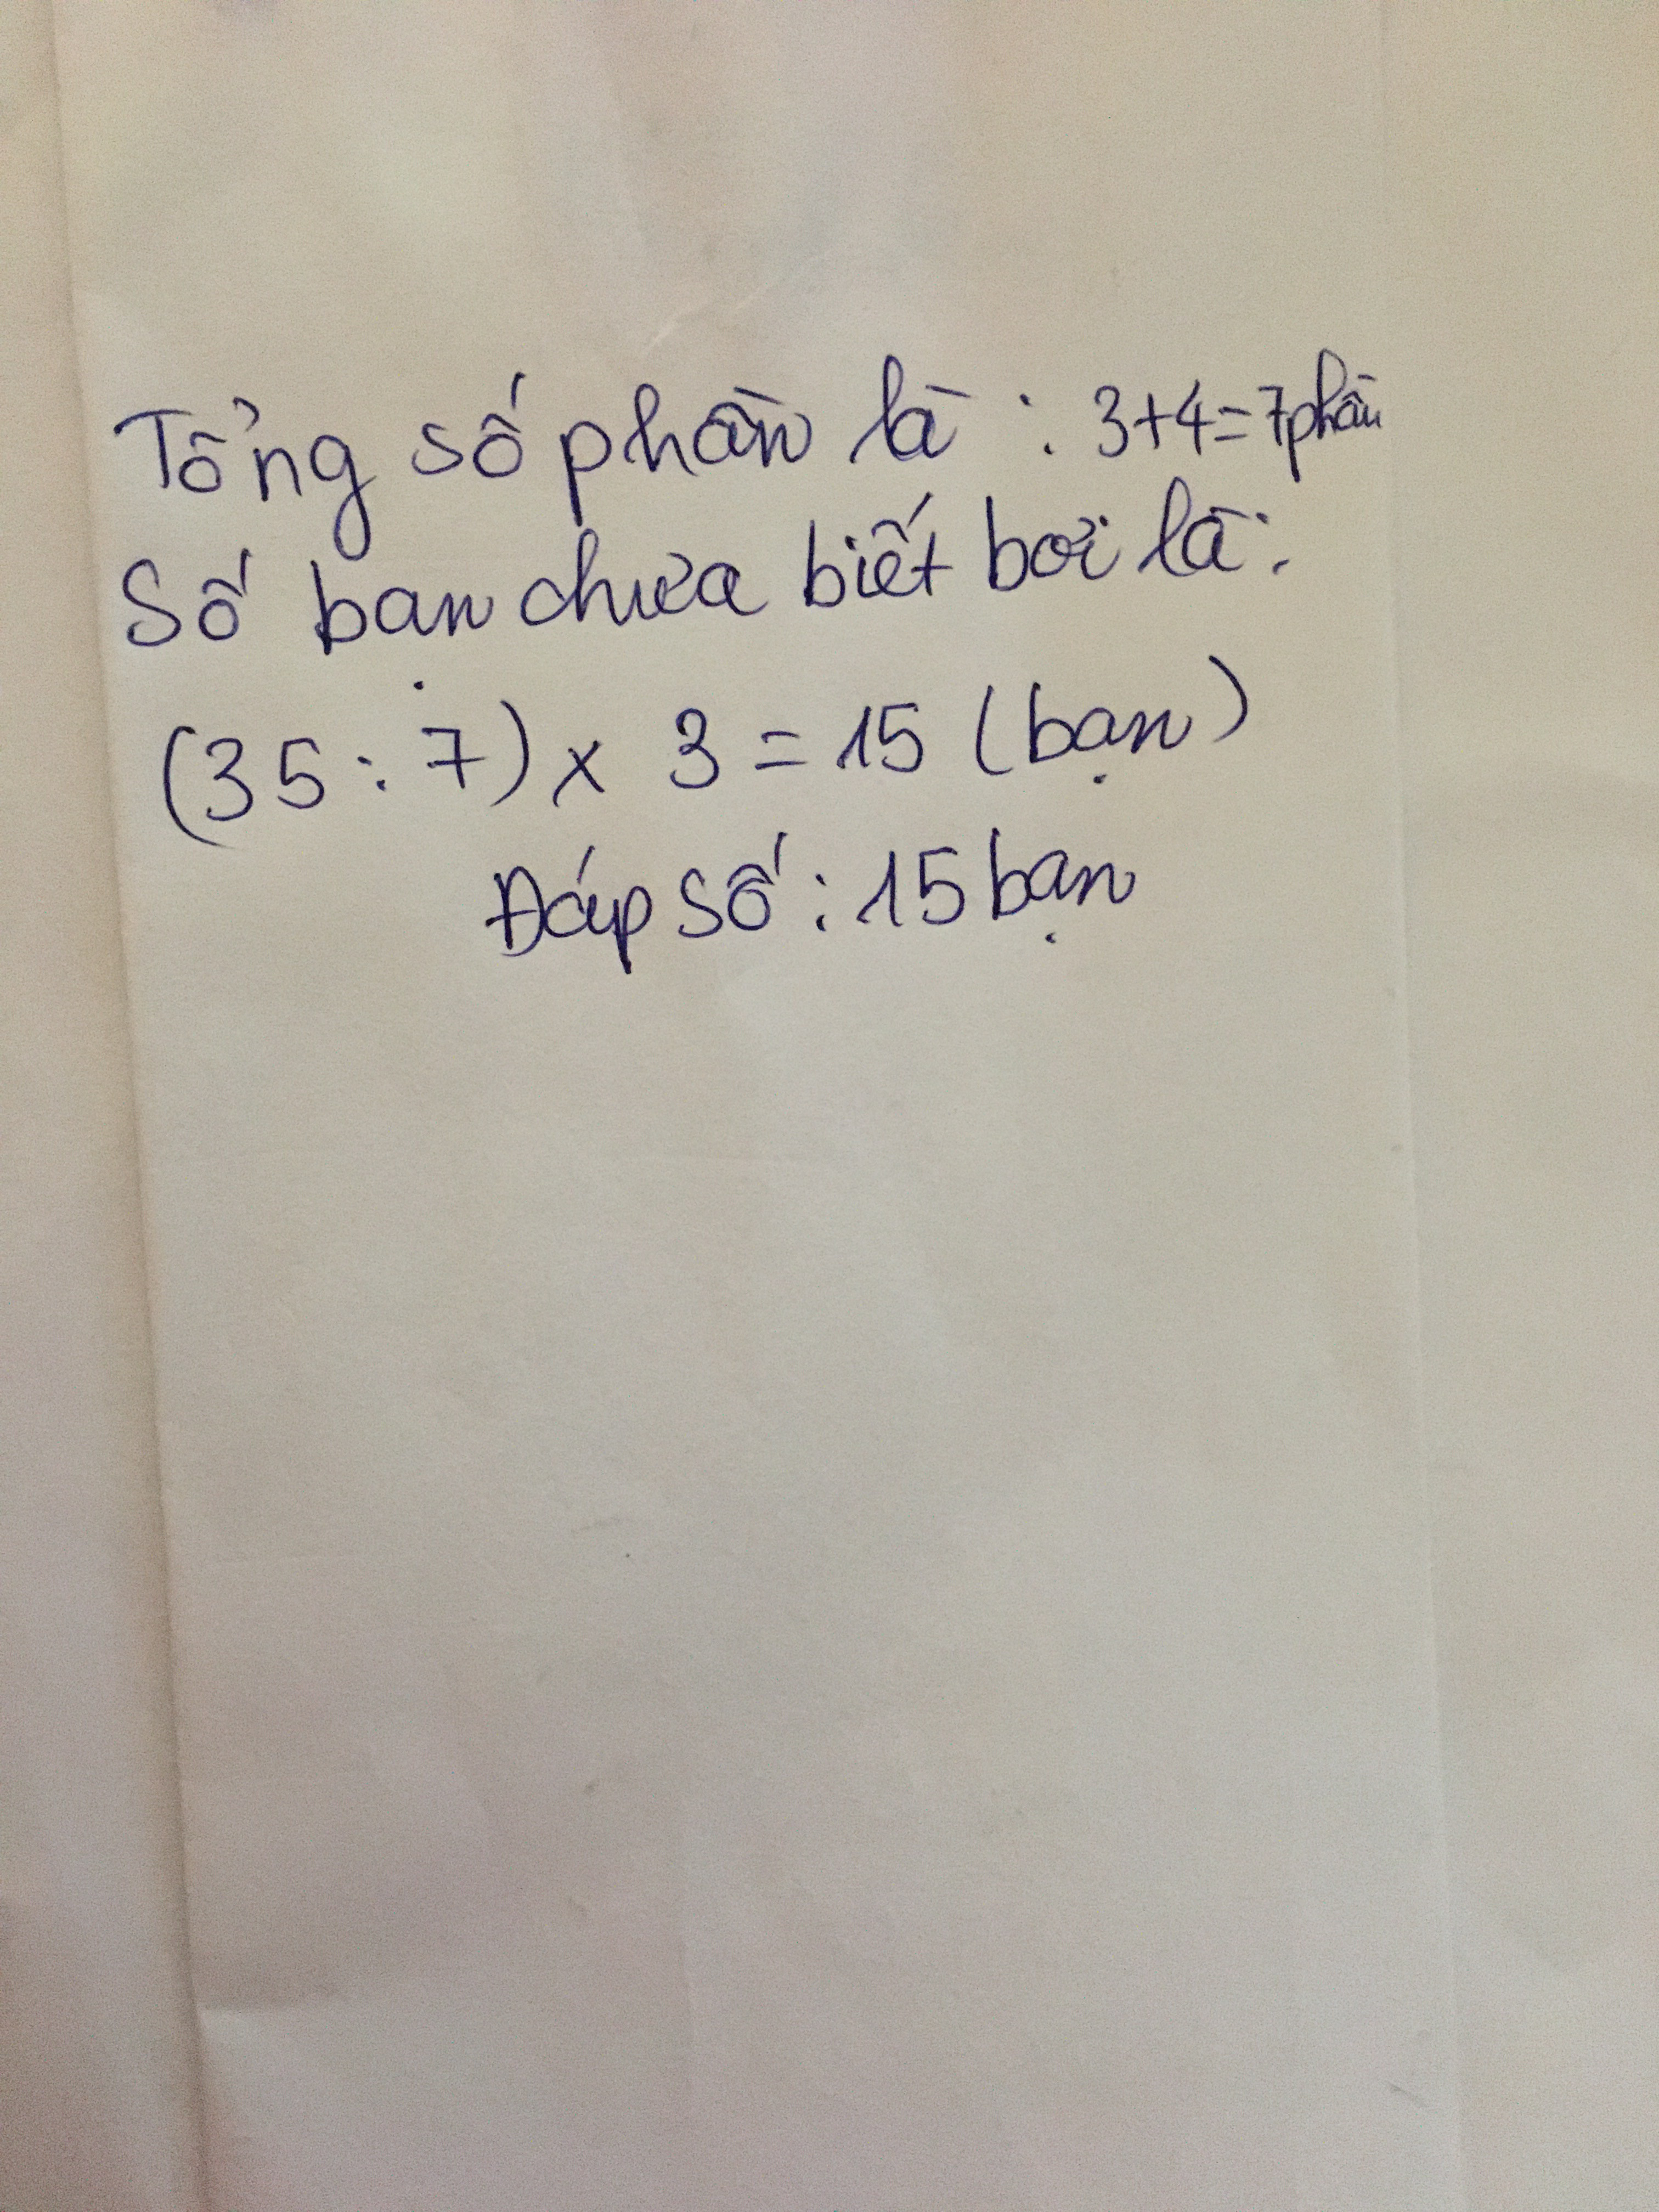 Tổng số phần là : 3+4=7phần
Số bạn chưa biết bơi là:
(35 : 7) x 3 = 15 (bạn)
Đáp số : 15 bạn